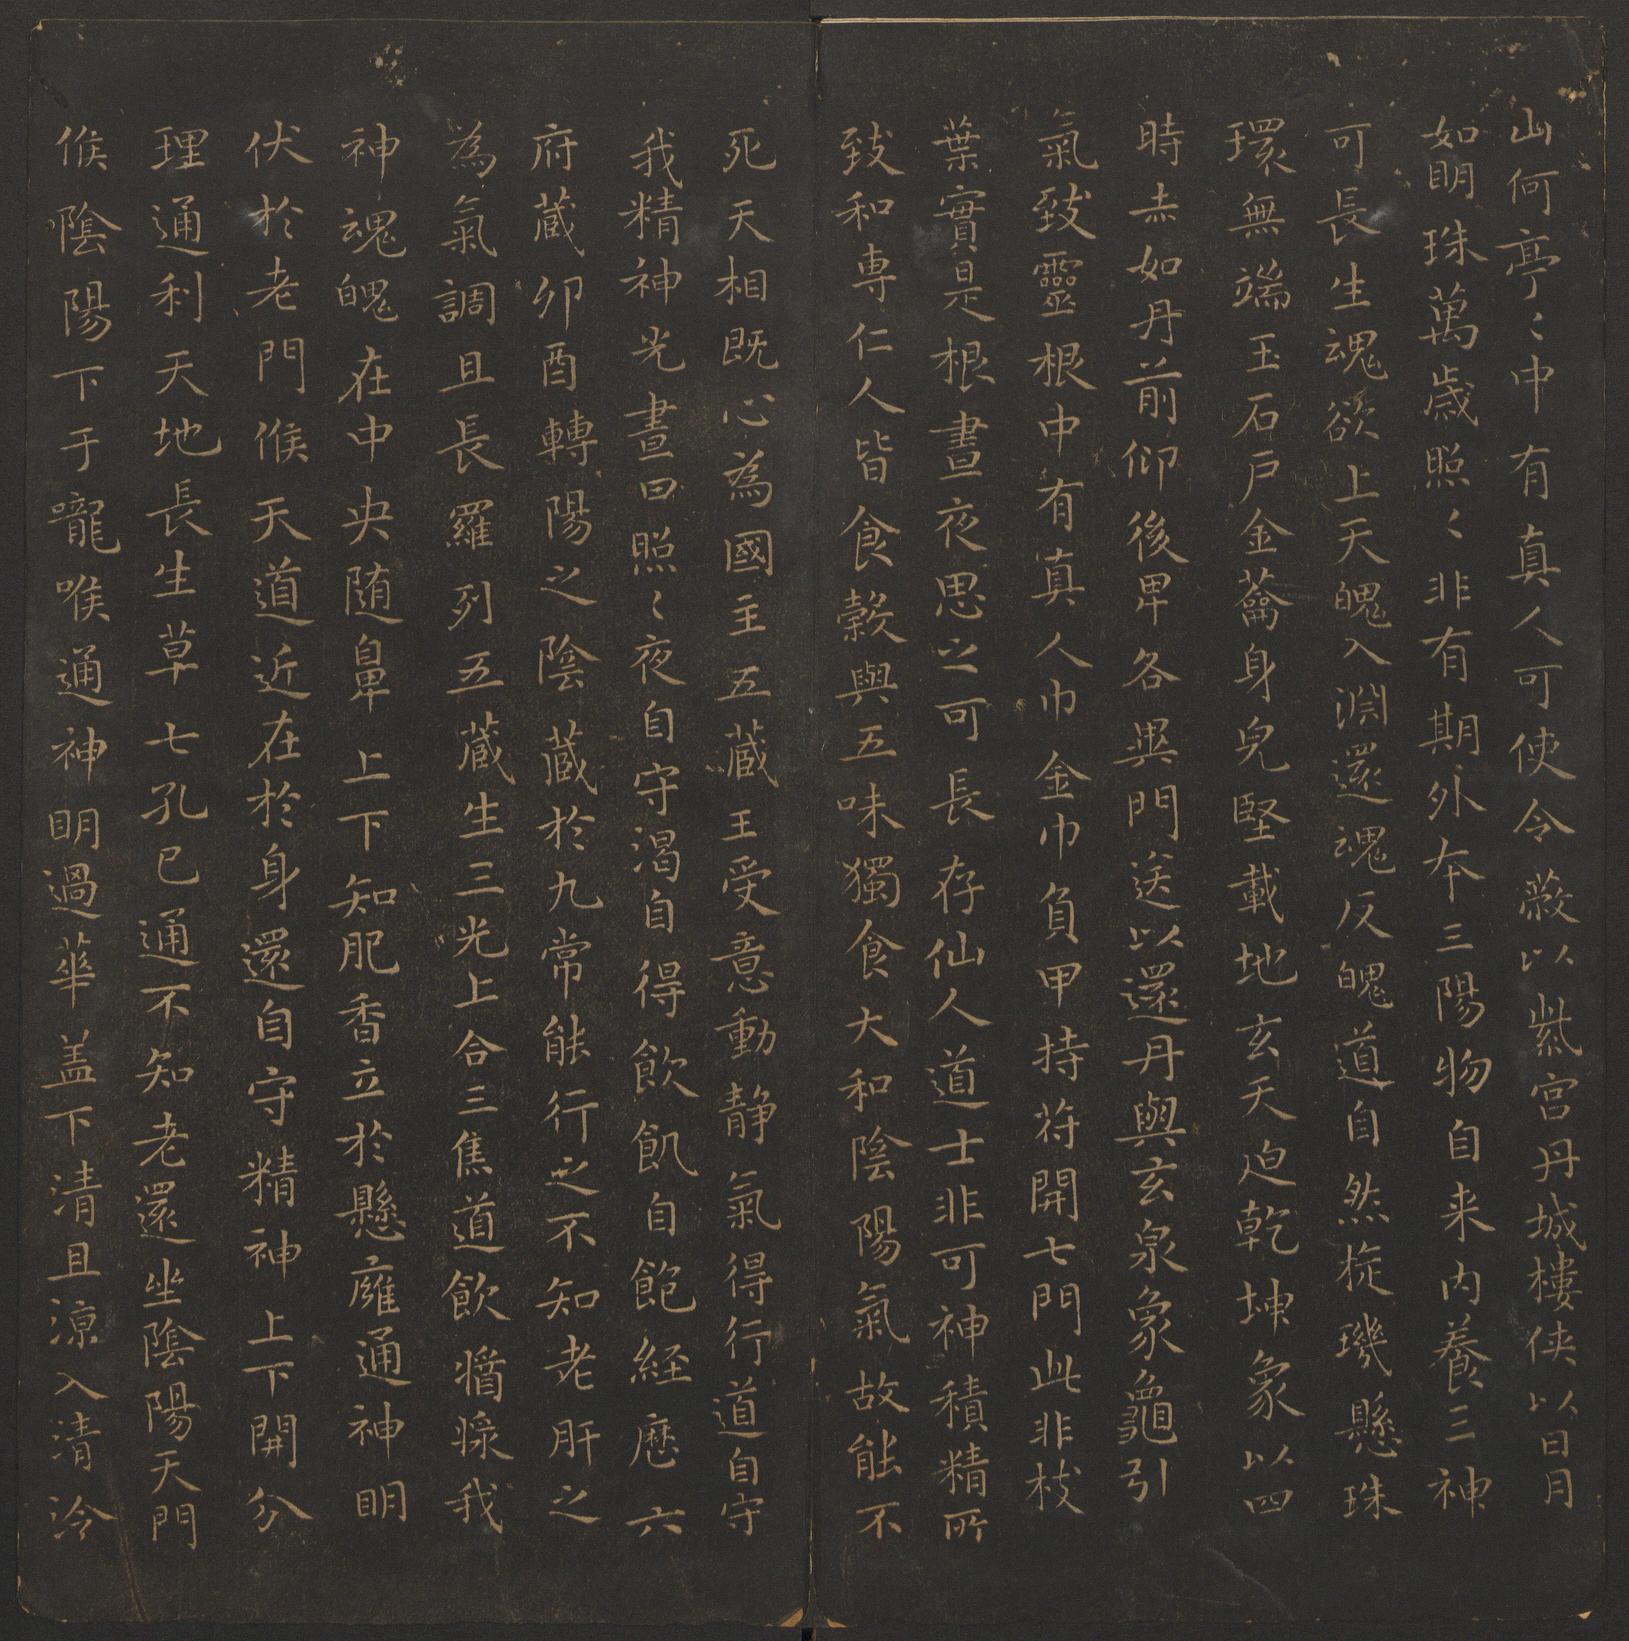 山何亭〻中有真人可使令蔽以紫宮丹城樓俠以日月
如明珠萬歲照〻非有期外夲三陽物自来內養三神
可長生魂欲上天魄入淵還魂反魄道自然旋璣懸珠
環無端玉石戶金蘥身皃堅載地玄天迫乾坤象以四
時赤如丹前仰後卑各異門送以還丹與玄泉象龜引
氣致靈根中有真人巾金巾負甲持苻開七門此非枝
葉實是根晝夜思之可長存仙人道士非可神積精所
致和專仁人皆食穀與五味獨食大和陰陽氣故能不
死天相既心為國主五藏王受意動靜氣得行道自守
我精神光晝日照〻夜自守渴自得飲飢自飽経歷六
府藏卯酉轉陽之陰藏於九常能行之不知老肝之
為氣調且長羅列五藏生三光上合三焦道飲醬漿我
神魂魄在中央随鼻上下知肥香立於懸廱通神明
伏於老門候天道近在於身還自守精神上下開分
理通利天地長生草七孔已通不知老還坐陰陽天門
候陰陽下于嚨喉通神明過華盖下清且涼入清泠